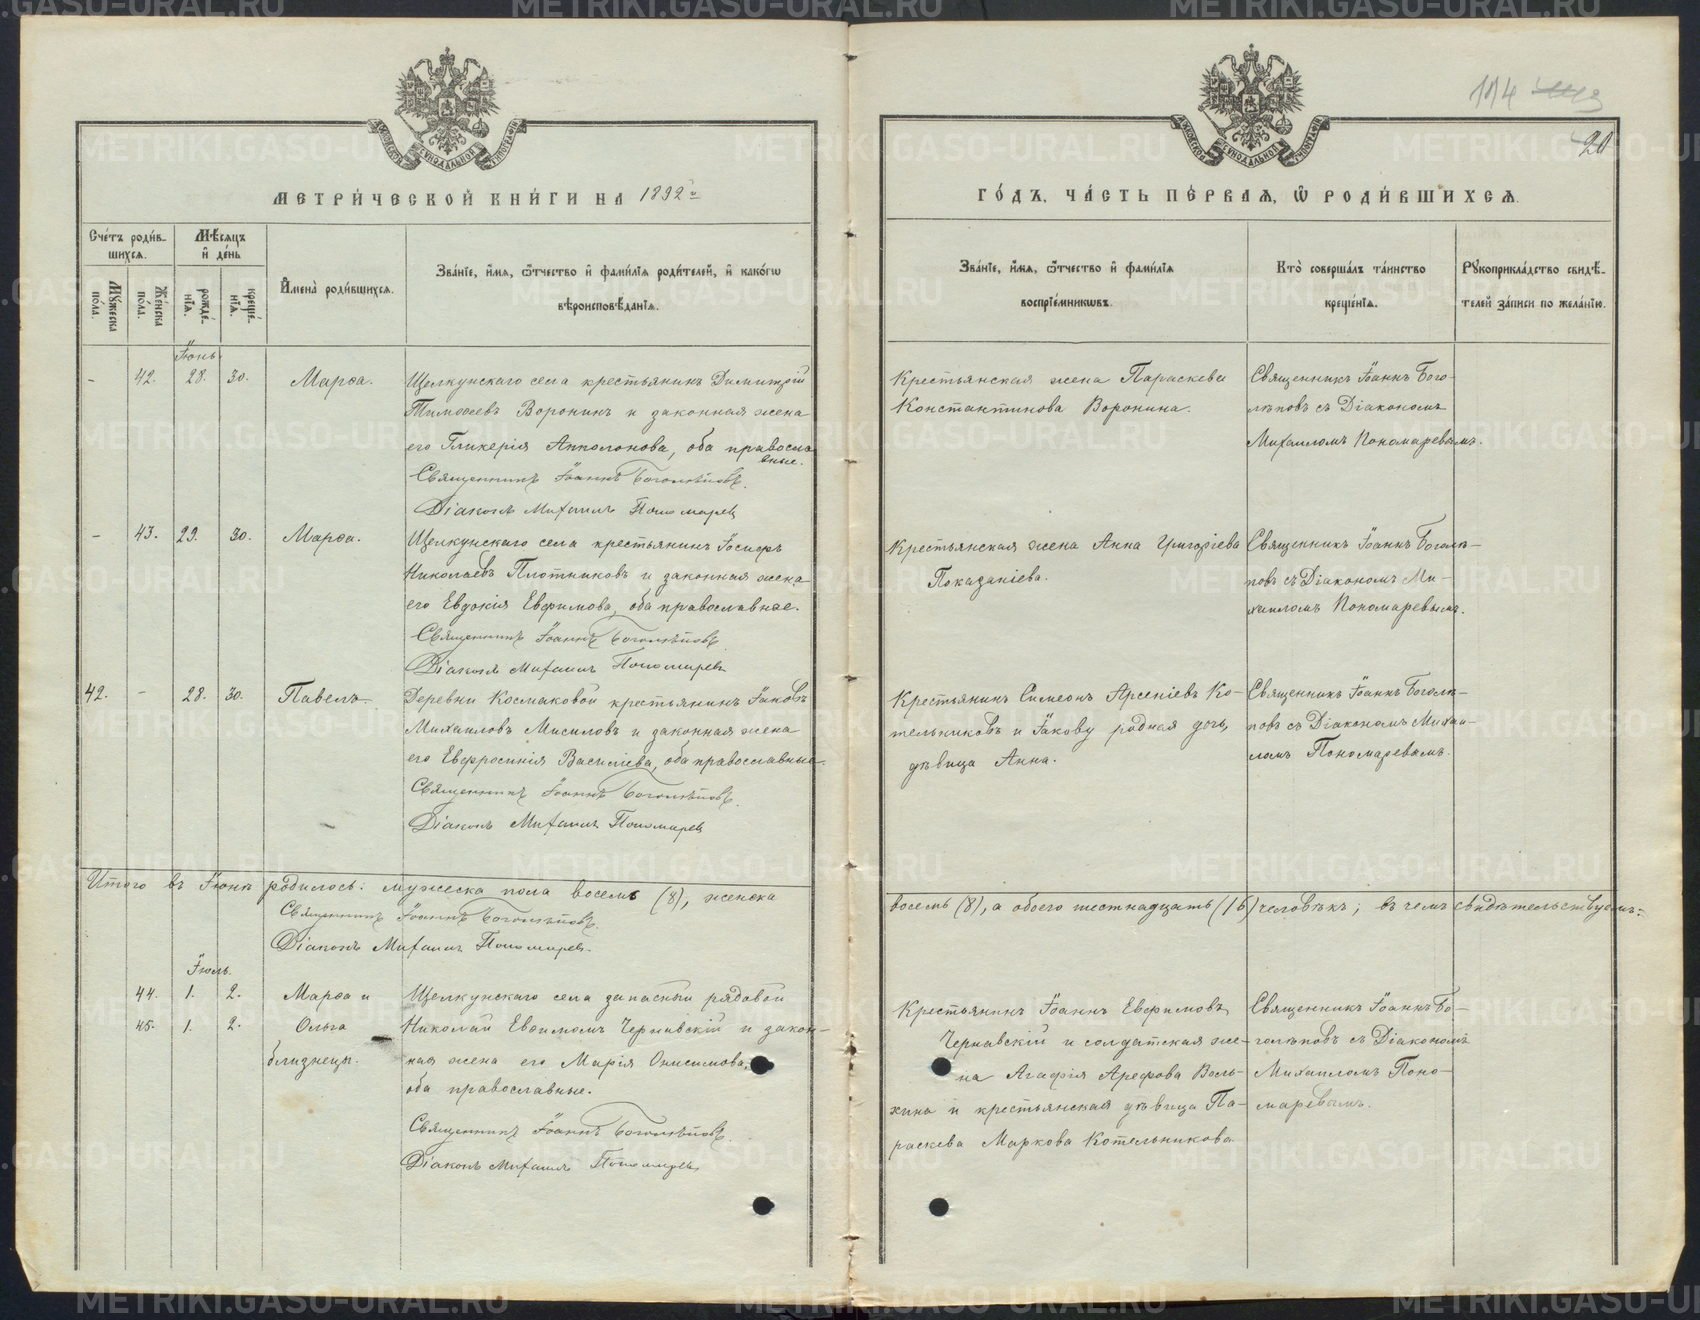 114
20
МЕТРИ́ЧЕСКОЙ КНИ́ГИ НА 1892 й
ГО́ДЪ, ЧА́СТЬ ПЕ́РВАЯ, Ѽ РОДИ́ВШИХСЯ.
Сче́тъ роди́в-
шихся.
Мѣ́сяцъ
и҆ де́нь
Мꙋ́жеска
по́ла.
Же́нска
по́ла.
рожде́-
нїѧ.
креще́-
нїѧ.
И҆мена̀ роди́вшихся.
Зва́нїе, и҆́мя, ѻ҆́тчество и҆ фами́лїя роди́телей, и҆ како́гѡ
вѣроисповѣ́данїя.
Зва́нїе, и҆́мя, ѻ҆́тчество и҆ фами́лїя
воспрїе́мникѡвъ.
Кто̀ соверша́лъ та́инство
креще́нїя.
Рꙋкоприкла́дство свидѣ́-
телей за́писи по жела́нїю.
Іюнь
- 42. 28. 30. Марѳа.
Щелкунскаго села крестьянинъ Димитрій
Тимоѳеевъ Воронинъ и законная жена
его Гликерія Апполонова, оба правосла
вные.
Священникъ Іоаннъ Боголѣповъ.
Діаконъ Михаилъ Пономарев
Крестьянская жена Параскева
Константинова Воронина.
Священникъ Іоаннъ Бого-
лѣповъ съ Діакономъ
Михаиломъ Пономаревымъ.
- 43. 29. 30. Марѳа.
Щелкунскаго села крестьянинъ Іосифъ
Николаевъ Плотниковъ и законная жена
его Евдокія Евфимова, оба православные.
Священникъ Іоаннъ Боголѣповъ
Діаконъ Михаилъ Пономарев
Крестьянская жена Анна Григоріева
Показаніева.
Священникъ Іоаннъ Боголѣ-
повъ съ Діакономъ Ми-
хаиломъ Пономаревымъ.
42. - 28. 30. Павелъ
Деревни Космаковой крестьянинъ Іаковъ
Михаиловъ Мисиловъ и законная жена
его Евфросинія Василіева, оба православные.
Священникъ Іоаннъ Боголѣповъ.
Діаконъ Михаилъ Пономарев
Крестьянинъ Симеонъ Арсеніевъ Ко-
тельниковъ и Іакову родная дочь,
дѣвица Анна.
Священникъ Іоаннъ Боголѣ-
повъ съ Діакономъ Михаи-
ломъ Пономаревымъ.
Итого въ Іюнѣ родилось: мужеска пола восемь (8), женска
восемь (8), а обоего шестнадцать (16) человѣкъ; въ чемъ свидѣтельствуемъ:
Священникъ Іоаннъ Боголѣповъ.
Діаконъ Михаилъ Пономарев.
Іюль.
44. 1. 2. Марѳа и
45. 1. 2. Ольга
близнецы.
Щелкунскаго села запасный рядовой
Николай Евѳимомъ Чернавскій и закон-
ная жена его Марія Онисимова,
оба православные.
Священникъ Іоаннъ Боголѣповъ.
Діаконъ Михаилъ Пономарев
Крестьянинъ Іоаннъ Евфимовъ
Чернавскій и солдатская же-
на Агафія Арефова Воль-
хина и крестьянская дѣвица Па-
раскева Маркова Котельникова
Священникъ Іоаннъ Бо-
голѣповъ съ Діакономъ
Михаиломъ Поно-
маревымъ.
METRIKI.GASO-URAL.RU